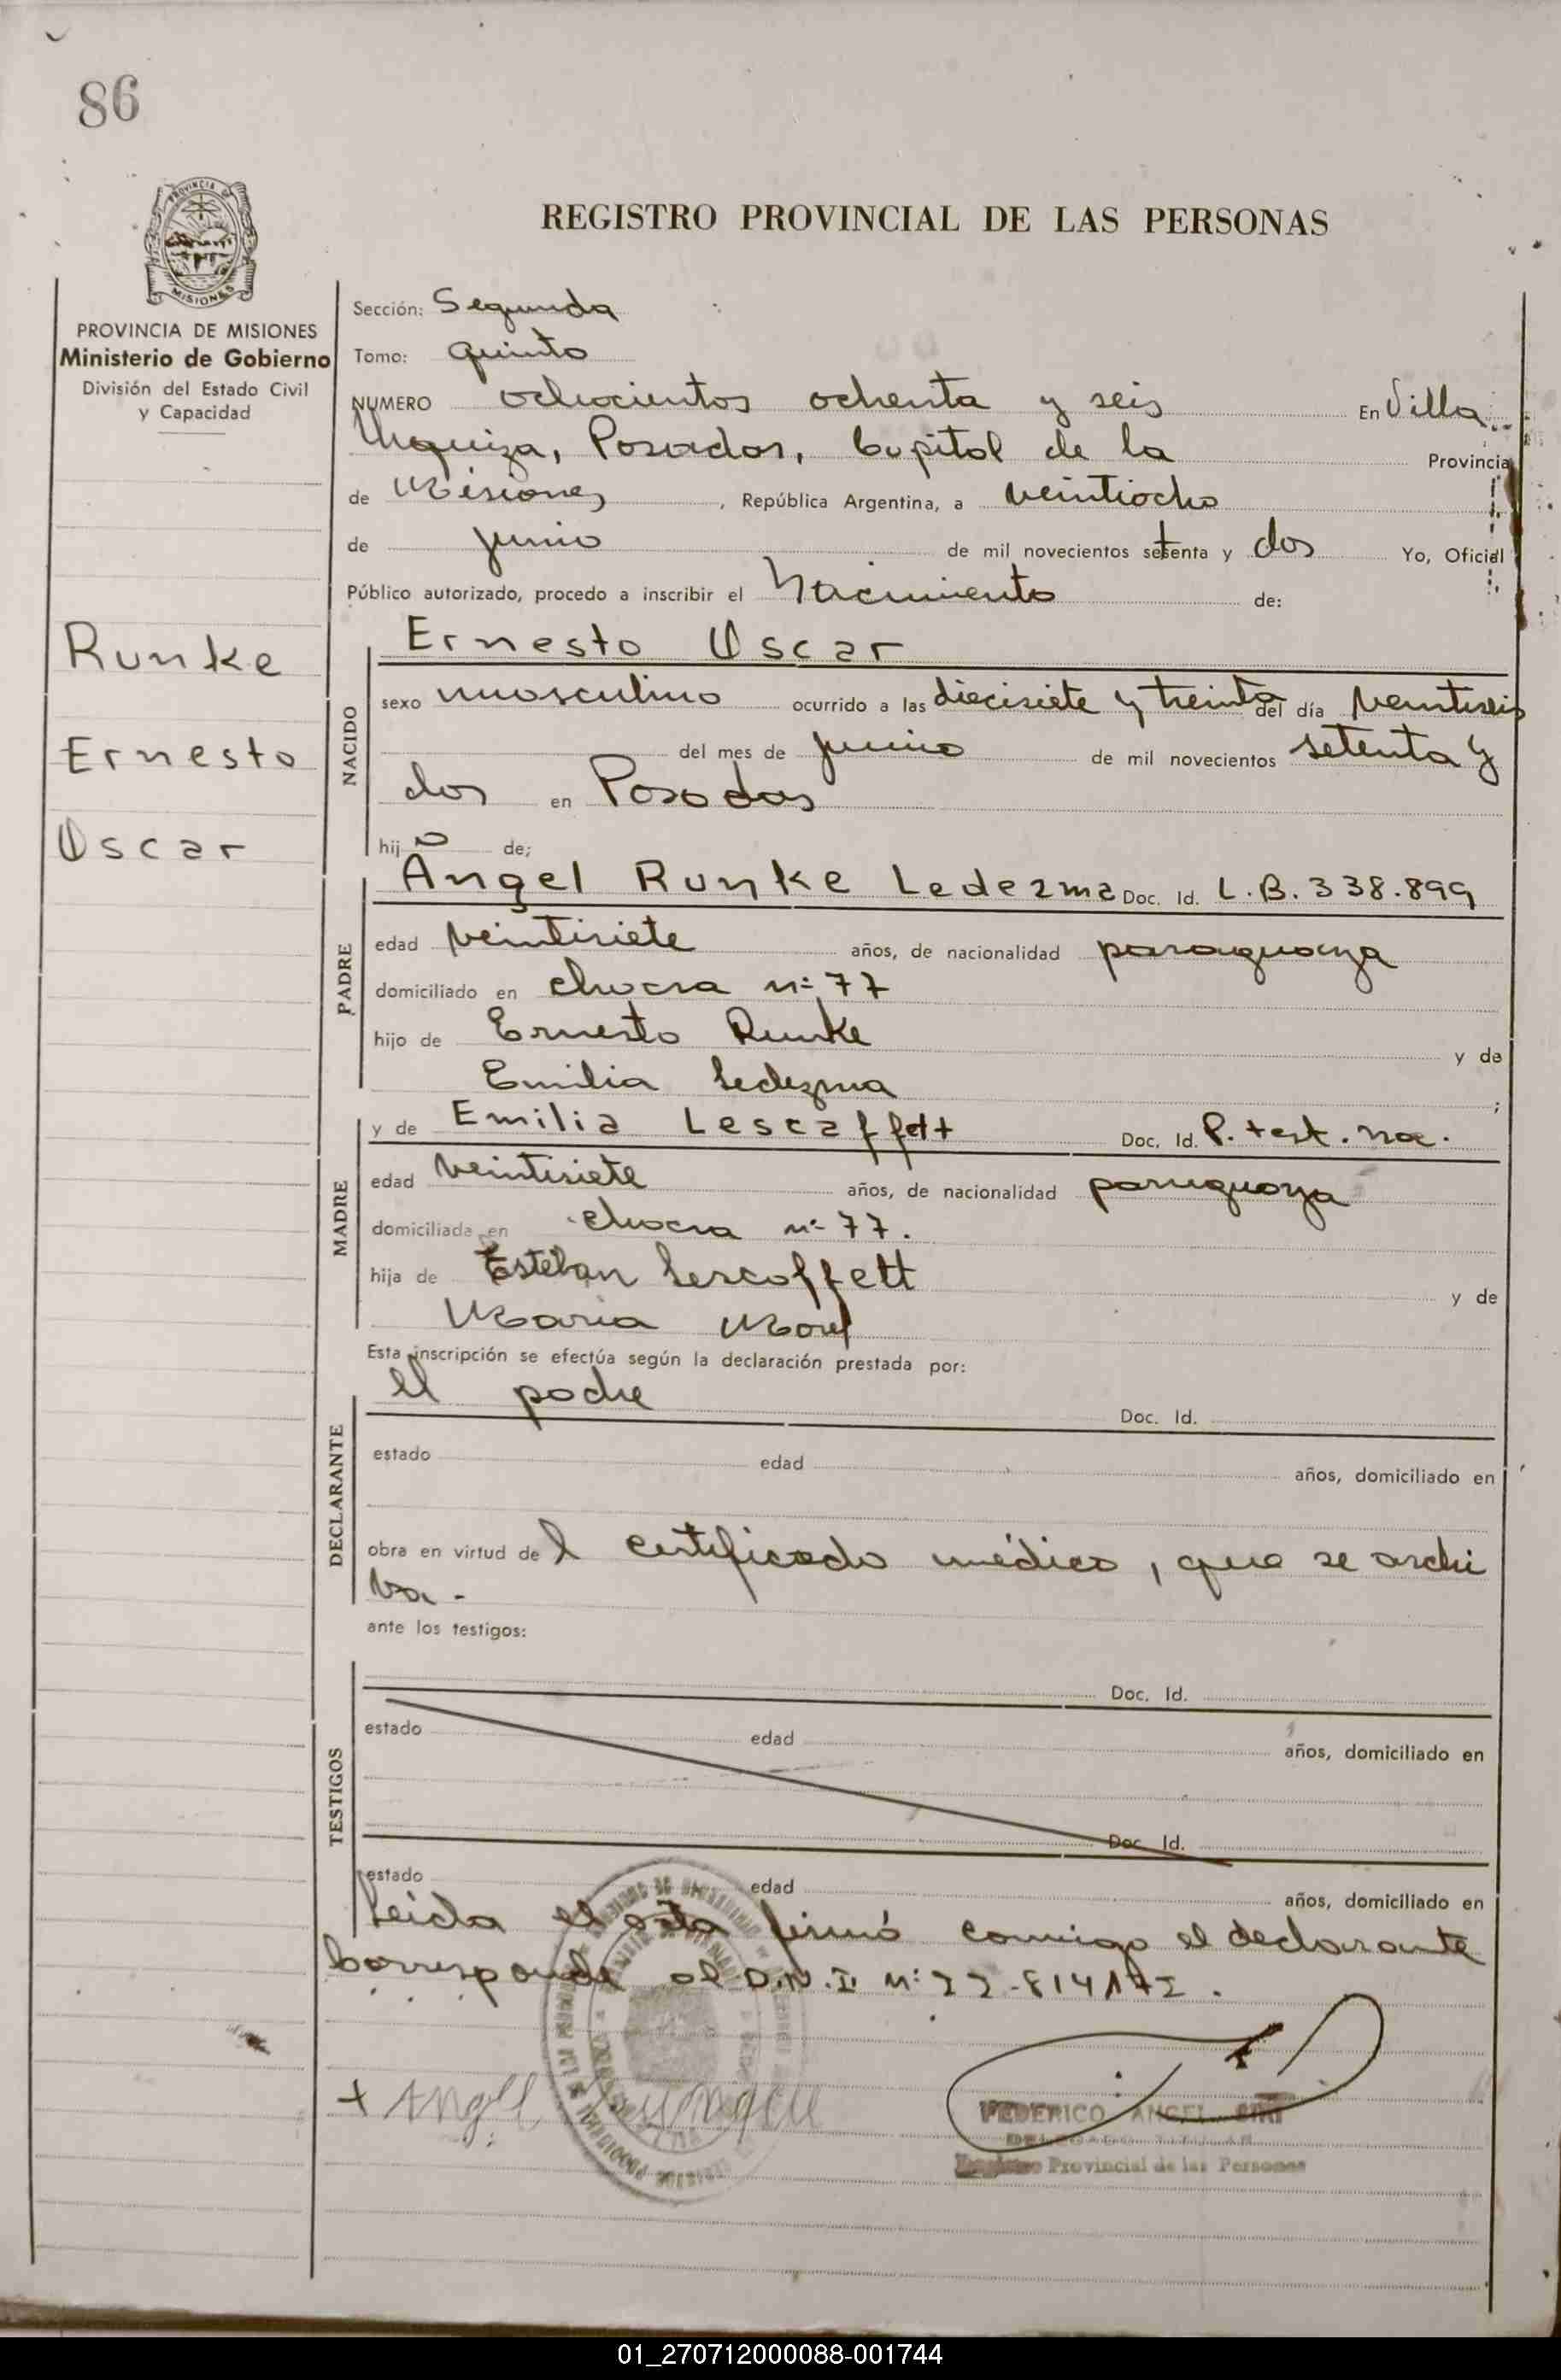 86
PROVINCIA DE MISIONES
MISIONES
PROVINCIA DE MISIONES
Ministerio de Gobierno
División del Estado Civil
y Capacidad
Runke
Ernesto
Oscar
REGISTRO PROVINCIAL DE LAS PERSONAS
Sección: Segunda
Tomo: quinto
NUMERO ochocientos ochenta y seis En Villa
Urquiza, Posadas, Capital de la Provincia
de Misiones, República Argentina, a veintiocho
de junio de mil novecientos setenta y dos Yo, Oficial
Público autorizado, procedo a inscribir el Nacimiento de:
NACIDO
Ernesto Oscar
sexo masculino ocurrido a las diecisiete y treinta del día veintiseis
del mes de junio de mil novecientos setenta y
dos en Posadas
hijo de;
PADRE
Angel Runke Ledezma Doc. Id. L.B. 338.899
edad veintisiete años, de nacionalidad paraguaya
domiciliado en chacra nº 77
hijo de Ernesto Runke y de
Emilia Ledezma ;
MADRE
y de Emilia Lescaffett Doc. Id. P. test. nac.
edad veintisiete años, de nacionalidad paraguaya
domiciliada en chacra nº 77.
hija de Esteban Lescaffett y de
Maria Morel
Esta inscripción se efectúa según la declaración prestada por:
DECLARANTE
el padre Doc. Id.
estado edad años, domiciliado en
obra en virtud del certificado médico, que se archi
va.-
ante los testigos:
TESTIGOS
Doc. Id.
estado edad años, domiciliado en
Doc. Id.
estado edad años, domiciliado en
Leida el acta firmó conmigo el declarante
Corresponde al D.N.I. Nº 22-814172.
+ Angel
FEDERICO ANGEL
DELEGADO TITULAR
Registro Provincial de las Personas
01_270712000088-001744